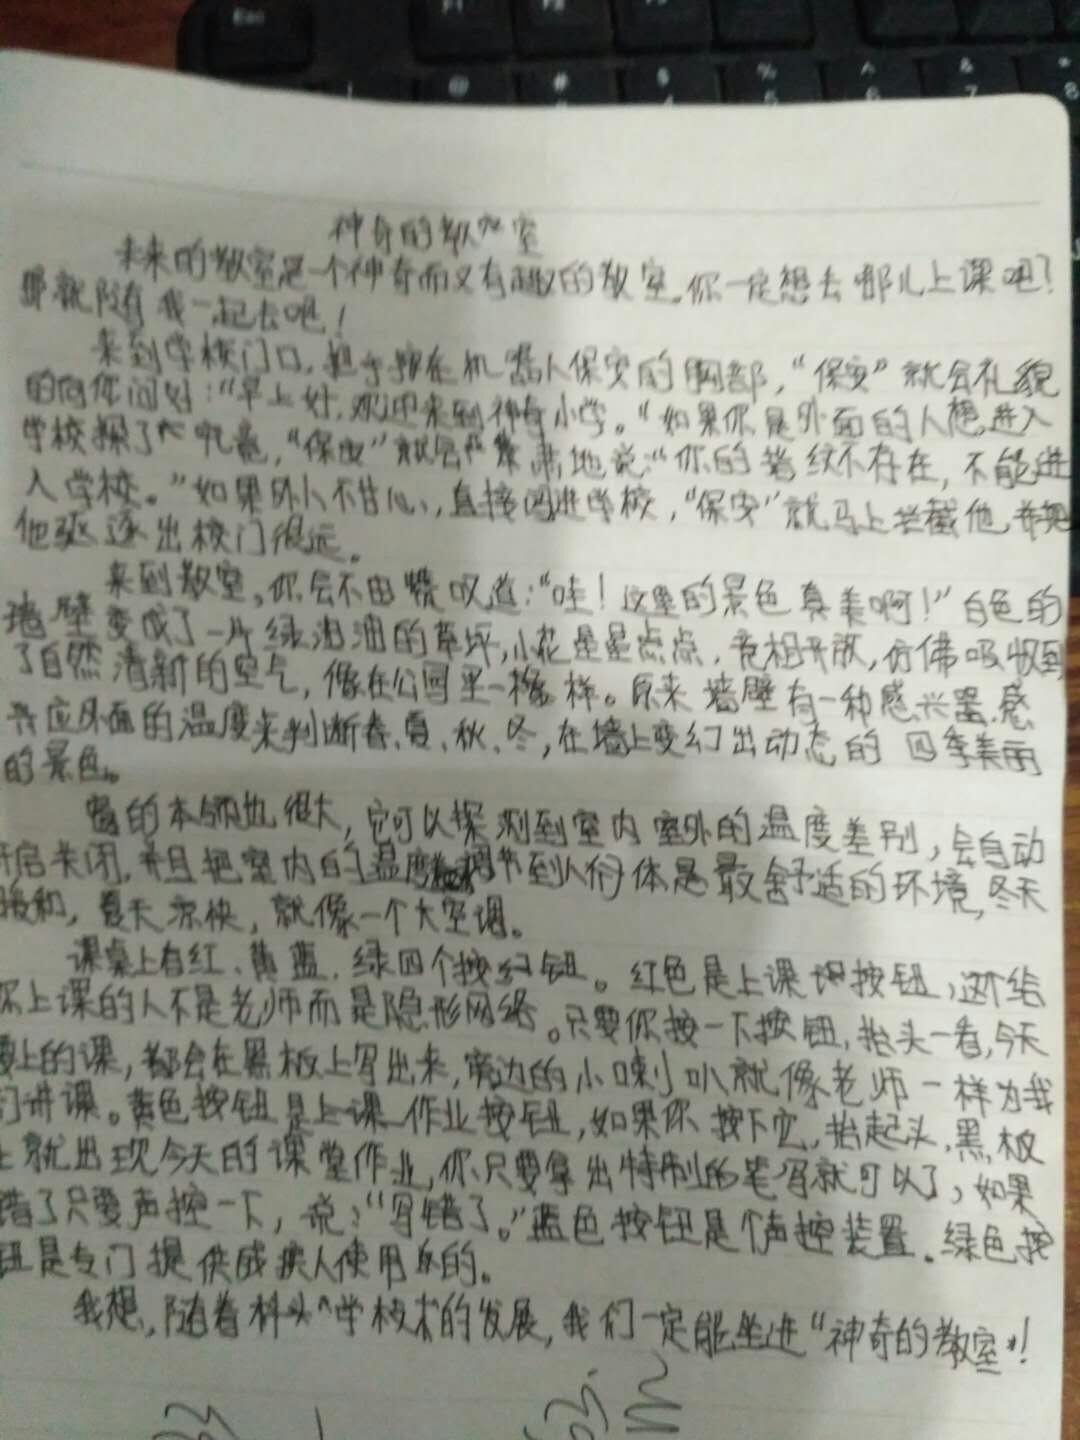 神奇的教室
未来的教室是一个神奇而又有趣的教室。你一定想去哪儿上课吧？
那就随着我一起去吧！
来到学校门口，把手按在机器人保安的胸部，“保安”就会礼貌
的向你问好：“早上好，欢迎来到神奇小学。“如果你是外面的人想进入
学校探个究竟，“保安”就会严肃地说：“你的指纹不存在，不能进
入学校。”如果外人不甘心，直接闯进学校，“保安”就马上拦截他，并把
他驱逐出校门很远。
来到教室，你会不由赞叹道：“哇！这里的景色真美啊！”白色的
墙壁变成了一片绿油油的草坪，小花星星点点，竞相开放，仿佛吸收到
了自然清新的空气，像在公园里一样。原来墙壁有一种感兴器，感
应外面的温度来判断春、夏、秋、冬，在墙上变幻出动态的四季美丽
的景色。
窗的本领也很大，它可以探测到室内室外的温度差别，会自动
开启关闭，并且把室内的温度调节到人们体是最舒适的环境，冬天
暖和，夏天凉快，就像一个大空调。
课桌上有红、黄、蓝、绿四个按钮。红色是上课按钮，这个给
你上课的人不是老师而是隐形网络。只要你按一下按钮，抬头一看，今天
要上的课，都会在黑板上写出来，旁边的小喇叭就像老师一样为我
们讲课。黄色按钮是上课作业按钮，如果你按下它，抬起头，黑板
上就出现今天的课堂作业，你只要拿出特制的笔写就可以了，如果
错了只要声控一下，说：“写错了。”蓝色按钮是个声控装置。绿色按
钮是专门提供残疾人使用的。
我想，随着科学技术的发展，我们一定能坐进“神奇的教室”！